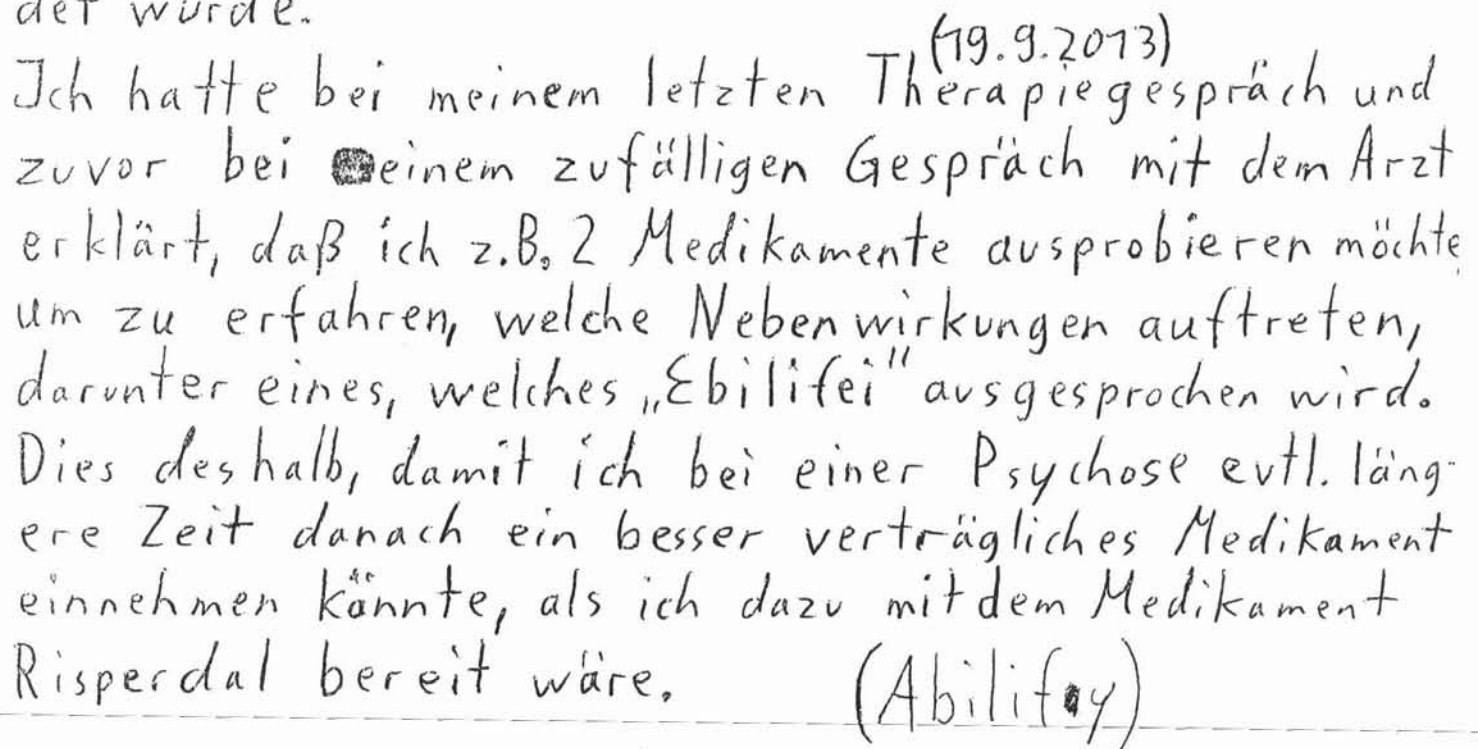 der würde.
(19.9.2013)
Ich hatte bei meinem letzten Therapiegespräch und
zuvor bei einem zufälligen Gespräch mit dem Arzt
erklärt, daß ich z.B. 2 Medikamente ausprobieren möchte,
um zu erfahren, welche Nebenwirkungen auftreten,
darunter eines, welches „Ebilifei" ausgesprochen wird.
Dies deshalb, damit ich bei einer Psychose evtl. läng-
ere Zeit danach ein besser verträgliches Medikament
einnehmen könnte, als ich dazu mit dem Medikament
Risperdal bereit wäre.
(Abilify)